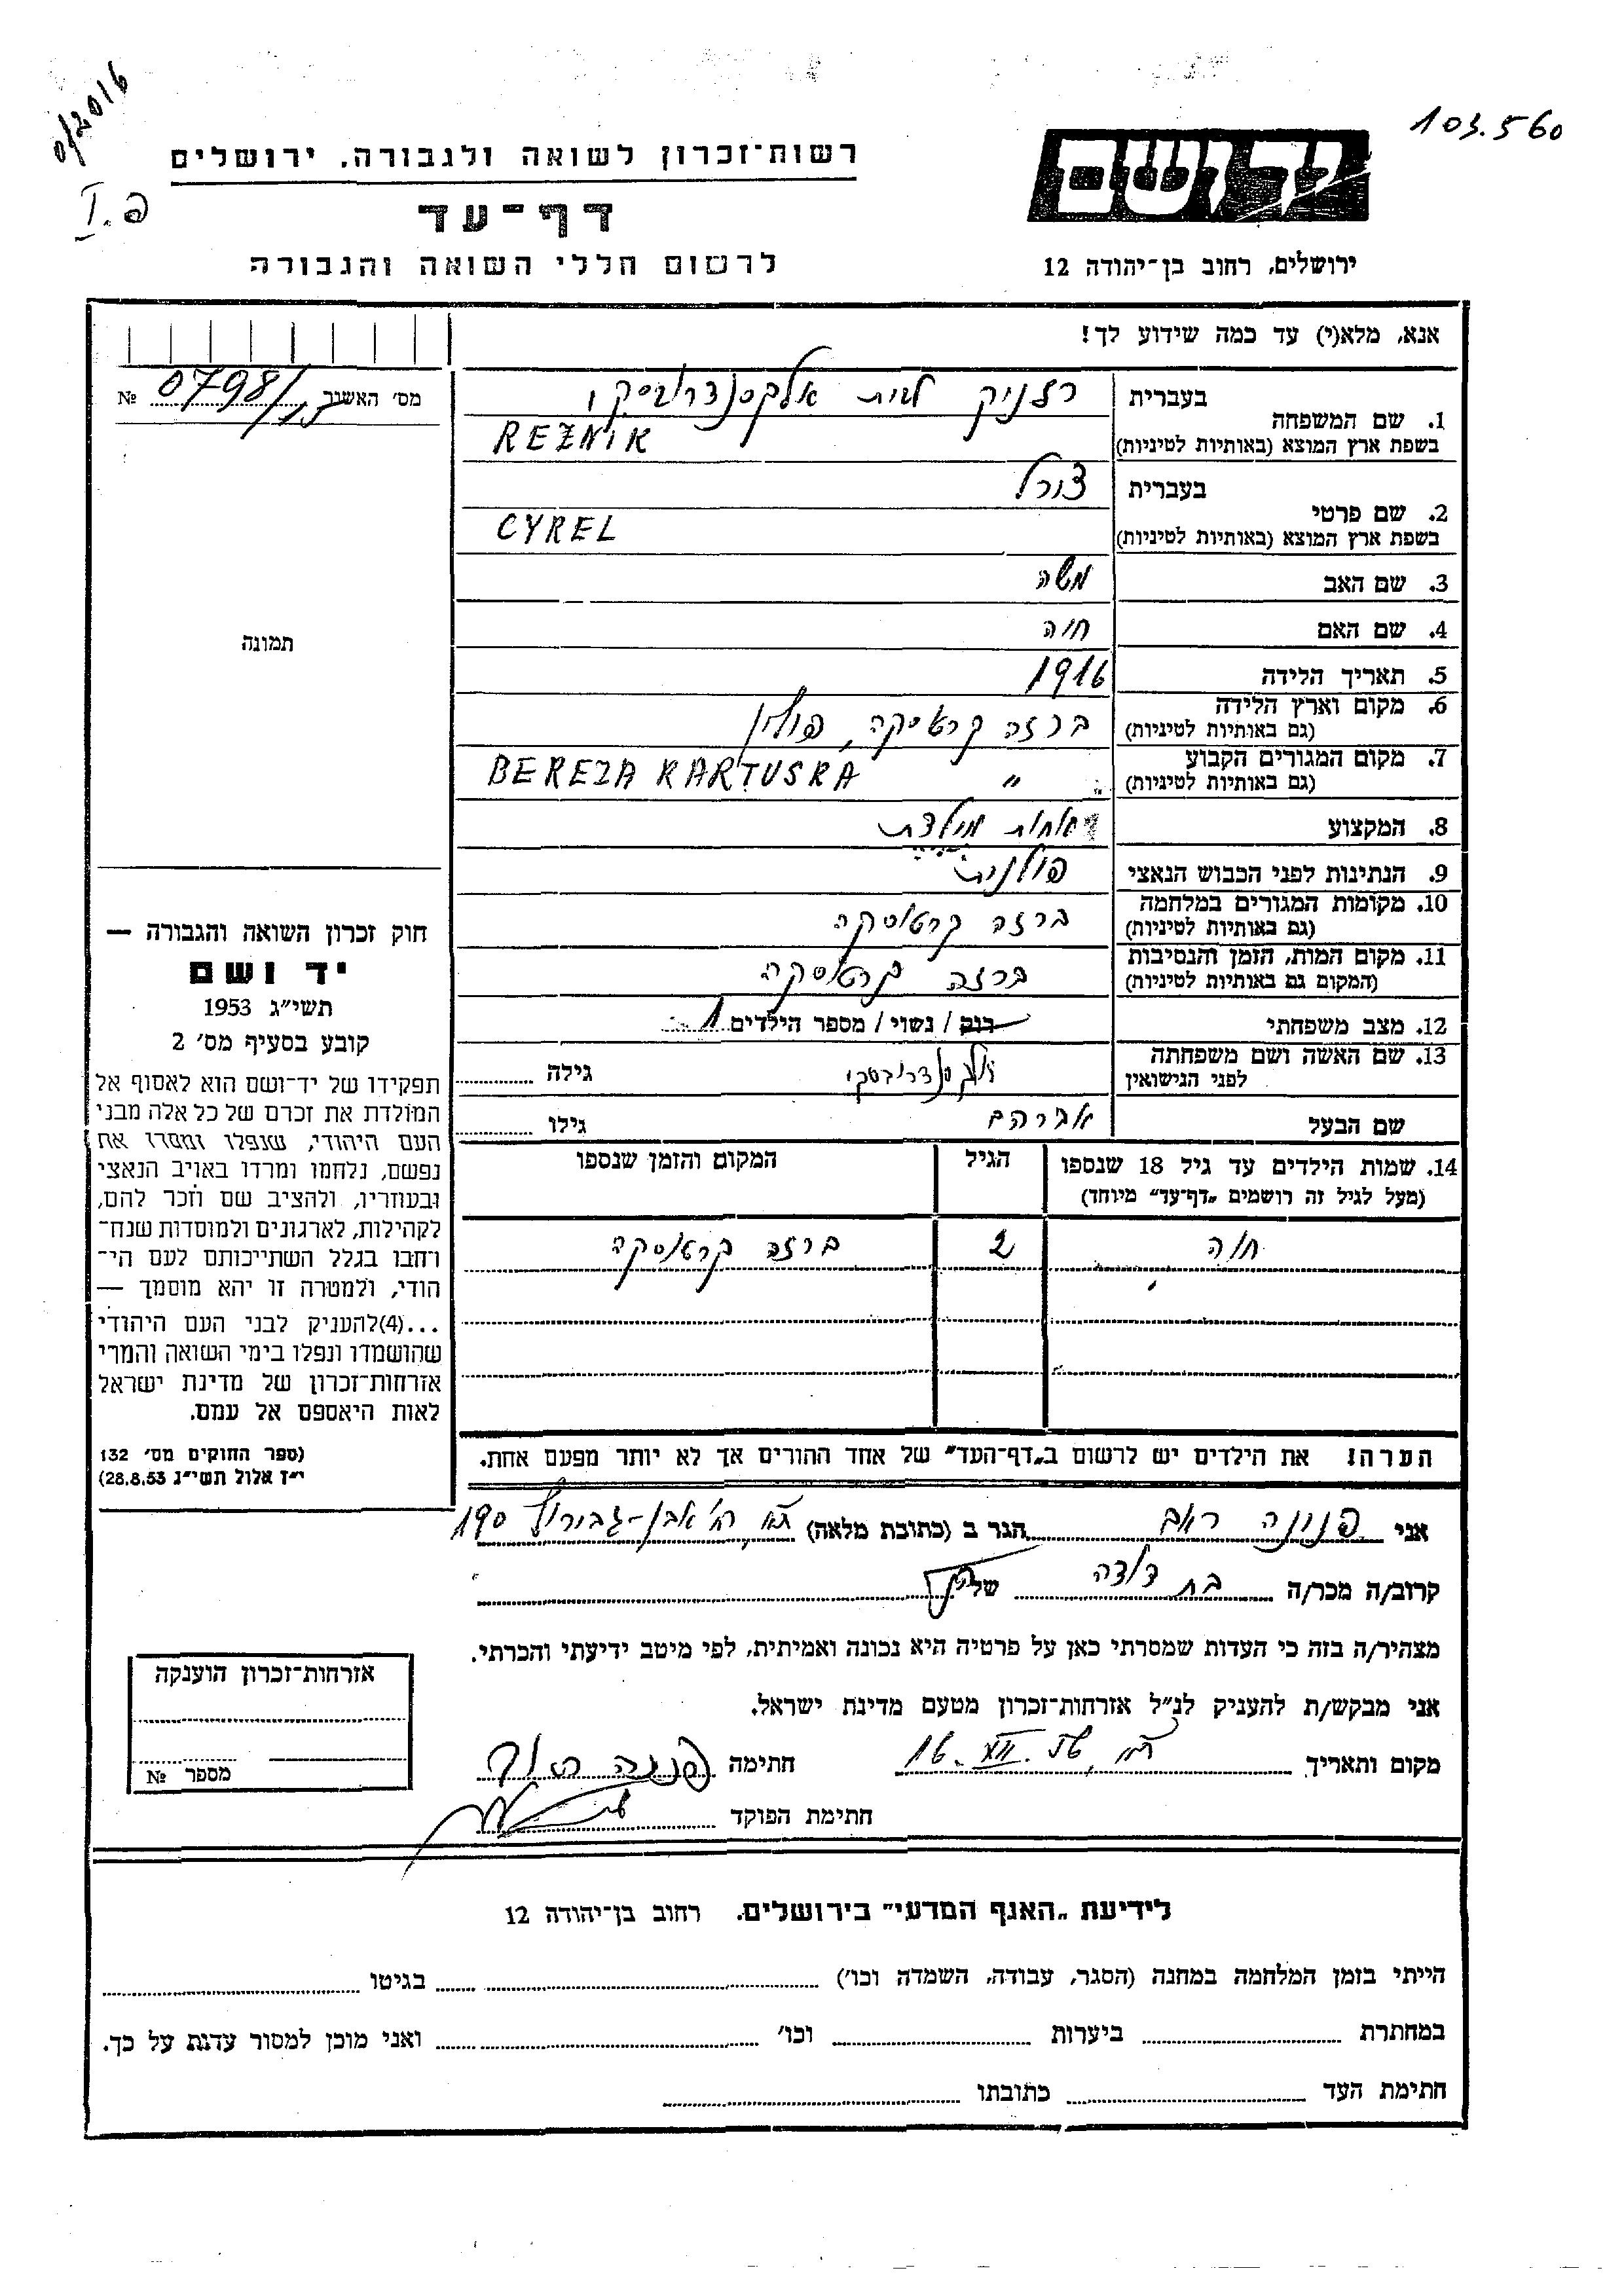 0/2016
103.560
פ. I
יד ושם
רשות־זכרון לשואה ולגבורה, ירושלים
דף־עד
לרשום חללי השואה והגבורה
ירושלים, רחוב בן־יהודה 12
אנא, מלא(י) עד כמה שידוע לך!
מס׳ האשור 0798/15 №
1. שם המשפחה בעברית רזניק לבית אלכסנדרובסקי
בשפת ארץ המוצא (באותיות לטיניות) REŻNIK
2. שם פרטי בעברית צירל
בשפת ארץ המוצא (באותיות לטיניות) CYREL
3. שם האב משה
4. שם האם חיה
5. תאריך הלידה 1916
6. מקום וארץ הלידה ברזה קרטוסקה, פולין
(גם באותיות לטיניות)
7. מקום המגורים הקבוע " BEREZA KARTUSKA
(גם באותיות לטיניות)
8. המקצוע אחות מילדת
9. הנתינות לפני הכבוש הנאצי פולנית
10. מקומות המגורים במלחמה ברזה קרטוסקה
(גם באותיות לטיניות)
11. מקום המות, הזמן והנסיבות ברזה קרטוסקה
(המקום גם באותיות לטיניות)
12. מצב משפחתי רוק / נשוי / מספר הילדים 1
13. שם האשה ושם משפחתה אלכסנדרובסקי גילה
לפני הנישואין
שם הבעל אברהם גילו
14. שמות הילדים עד גיל 18 שנספו הגיל המקום והזמן שנספו
(מעל לגיל זה רושמים „דף־עד” מיוחד)
חיה 2 ברזה קרטוסקה
הערה! את הילדים יש לרשום ב„דף־העד” של אחד ההורים אך לא יותר מפעם אחת.
תמונה
חוק זכרון השואה והגבורה —
יד ושם
תשי״ג 1953
קובע בסעיף מס׳ 2
תפקידו של יד־ושם הוא לאסוף אל
המולדת את זכרם של כל אלה מבני
העם היהודי, שנפלו ומסרו את
נפשם, נלחמו ומרדו באויב הנאצי
ובעוזריו, ולהציב שם וזכר להם,
לקהילות, לארגונים ולמוסדות שנח־
רחבו בגלל השתייכותם לעם הי־
הודי, ולמטרה זו יהא מוסמך —
...(4)להעניק לבני העם היהודי
שהושמדו ונפלו בימי השואה והמרי
אזרחות־זכרון של מדינת ישראל
לאות היאספם אל עמם.
(ספר החוקים מס׳ 132
י״ז אלול תשי״ג 28.8.53)
אני פנינה הגר ב (כתובת מלאה) ת״א רח׳ אבן-גבירול 190
קרוב/ה מכר/ה בת דודה של
מצהיר/ה בזה כי העדות שמסרתי כאן על פרטיה היא נכונה ואמיתית, לפי מיטב ידיעתי והכרתי.
אני מבקש/ת להעניק לנ״ל אזרחות־זכרון מטעם מדינת ישראל.
מקום ותאריך ת״א, 16. XII. 56 חתימה פנינה
חתימת הפוקד
אזרחות־זכרון הוענקה
מספר №
לידיעת „האגף המדעי” בירושלים. רחוב בן־יהודה 12
הייתי בזמן המלחמה במחנה (הסגר, עבודה, השמדה וכו׳) בגיטו
במחתרת ביערות וכו׳ ואני מוכן למסור עדות על כך.
חתימת העד כתובתו